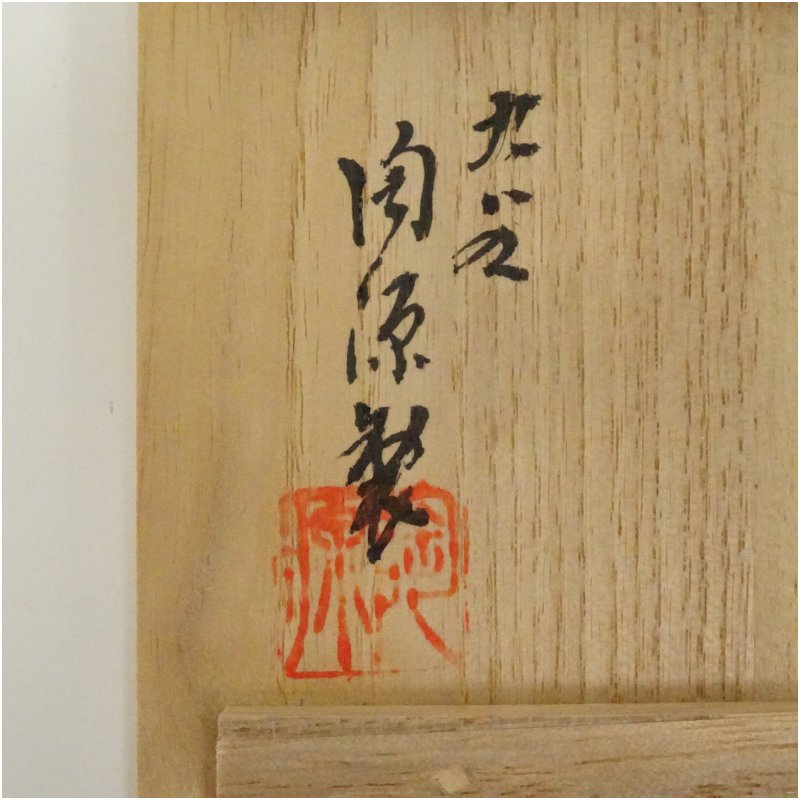 九谷
陶源製